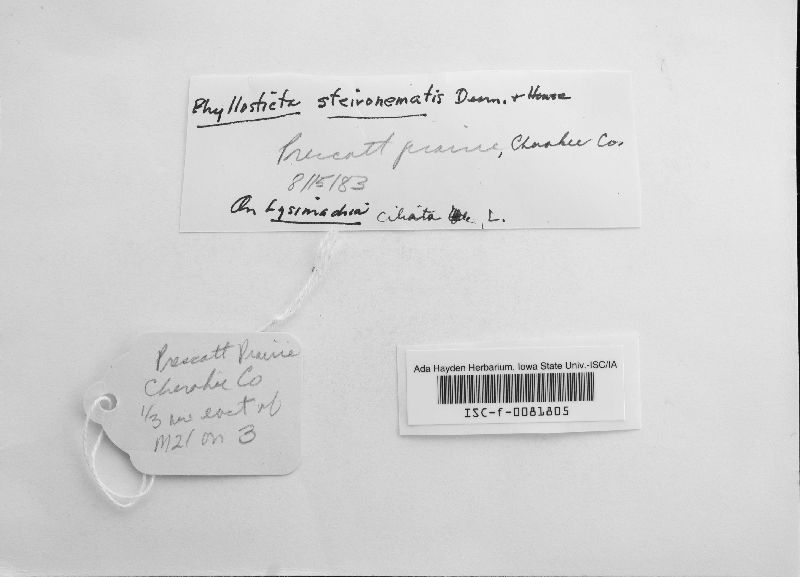 Phyllosticta steironematis Dearn. + House
Prescott prairie, Cherokee Co.
8/15/83
On Lysimachia ciliata L.
Prescott Prairie
Cherokee Co
1/3 mi east of
M21 on 3
Ada Hayden Herbarium. Iowa State Univ.-ISC/IA
ISC-f-0081805